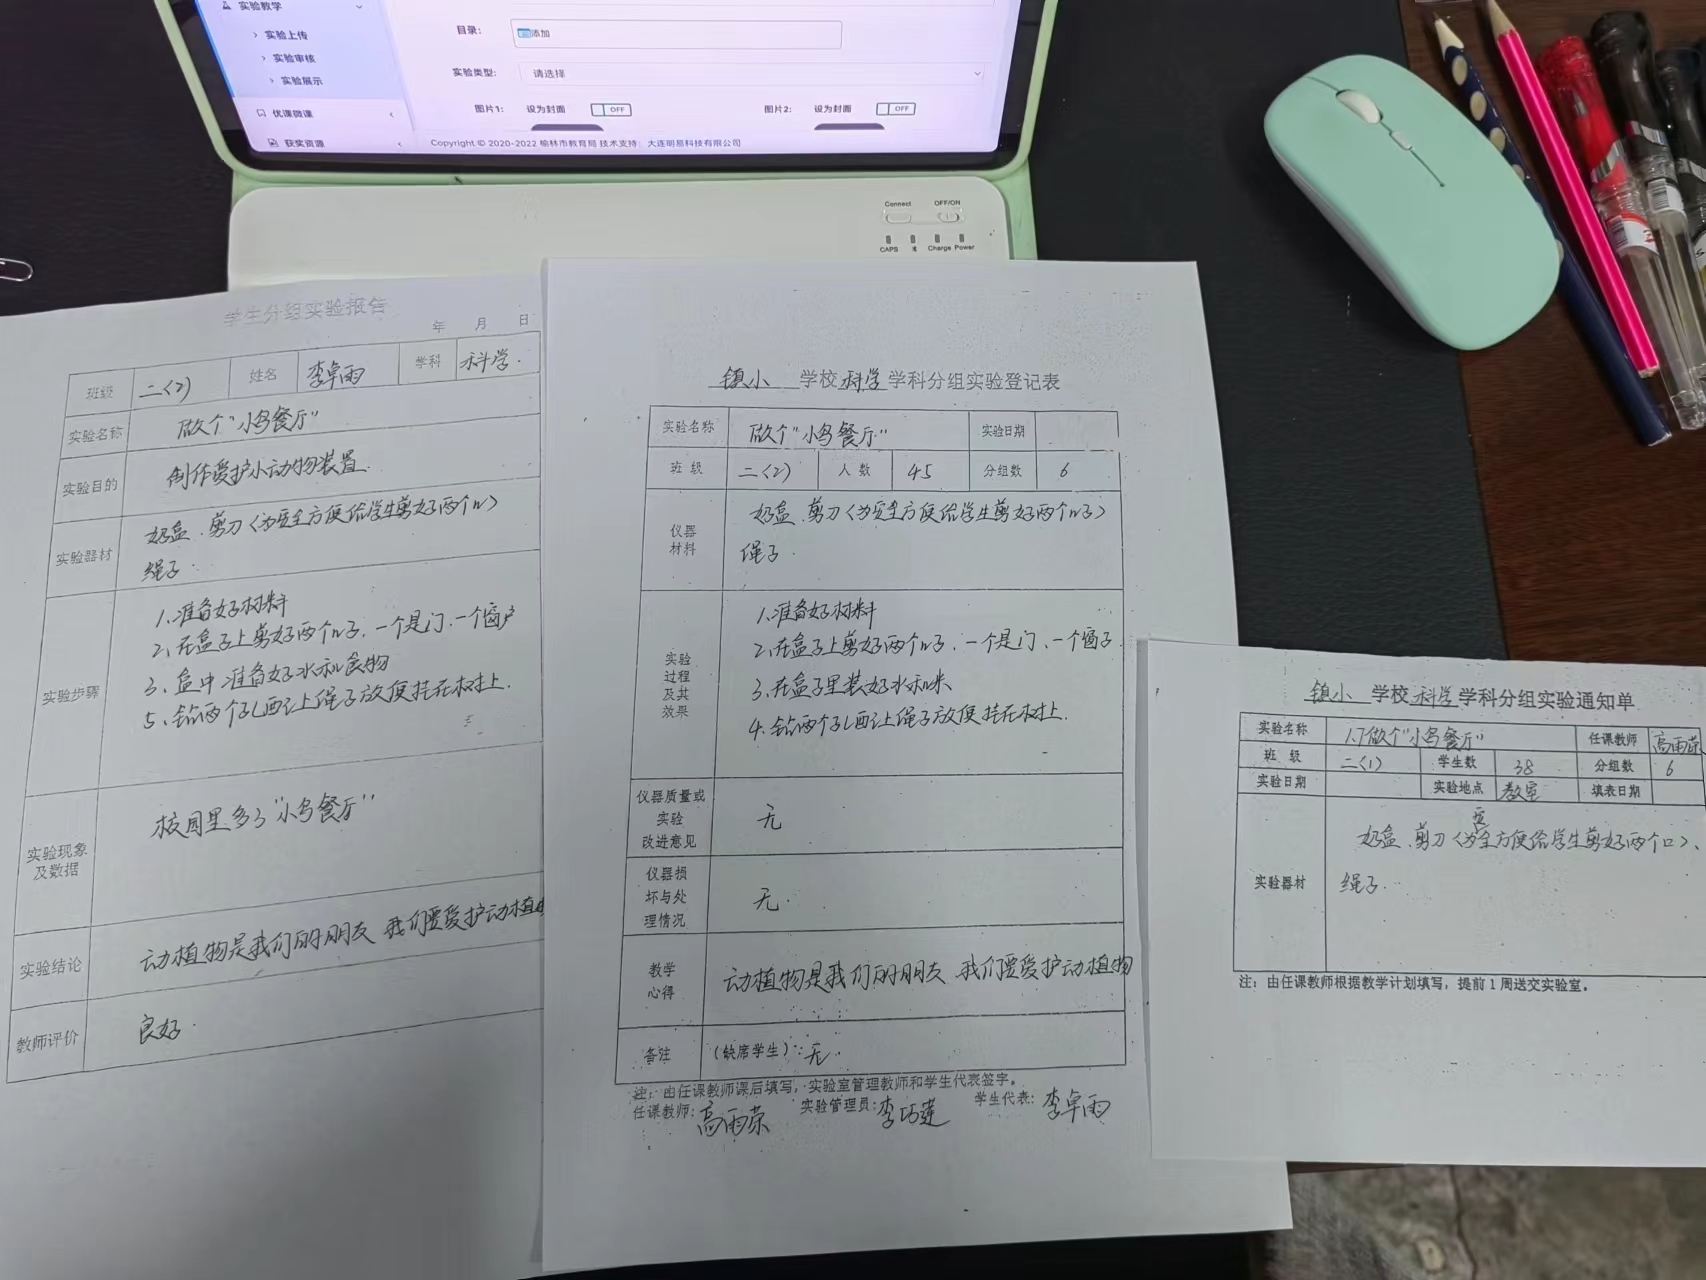 实验教学
实验上传
实验审核
实验展示
优课微课
获奖资源
目录:
添加
实验类型:
请选择
图片1:
设为封面
OFF
图片2:
设为封面
OFF
Copyright © 2020-2022 榆林市教育局 技术支持: 大连明易科技有限公司
Connect
OFF/ON
CAPS
Charge Power
学生分组实验报告
年 月 日
班级 二(2) 姓名 李卓雨 学科 科学.
实验名称 做个"小鸟餐厅"
实验目的 制作爱护小动物装置
实验器材 奶盒、剪刀(为安全方便给学生剪好两个口)
绳子.
实验步骤
1.准备好材料
2.在盒子上剪好两个口子,一个是门、一个窗户
3.盒中准备好水和食物
5.钻两个孔西让绳子放便挂在树上.
实验现象
及数据
校园里多了"小鸟餐厅"
实验结论 动植物是我们的朋友 我们要爱护动植
教师评价 良好.
镇小 学校 科学 学科分组实验登记表
实验名称 做个"小鸟餐厅" 实验日期
班 级 二(2) 人 数 45 分组数 6
仪器
材料
奶盒、剪刀(为安全方便给学生剪好两个口子)
绳子.
实验
过程
及其
效果
1.准备好材料
2.在盒子上剪好两个口子,一个是门、一个窗子.
3.在盒子里装好水和米
4.钻两个孔西让绳子放便挂在树上.
仪器质量或
实验
改进意见
无
仪器损
坏与处
理情况
无.
教学
心得
动植物是我们的朋友 我们要爱护动植物
备注 (缺席学生):无.
注:由任课教师课后填写,实验室管理教师和学生代表签字。
任课教师:高雨荣 实验管理员:李巧莲 学生代表:李卓雨
镇小 学校 科学 学科分组实验通知单
实验名称 1.7做个"小鸟餐厅" 任课教师 高雨荣
班 级 二(1) 学生数 38 分组数 6
实验日期 实验地点 教室 填表日期
实验器材
奶盒、剪刀(为安全方便给学生剪好两个口)、
绳子.
注:由任课教师根据教学计划填写,提前1周送交实验室。